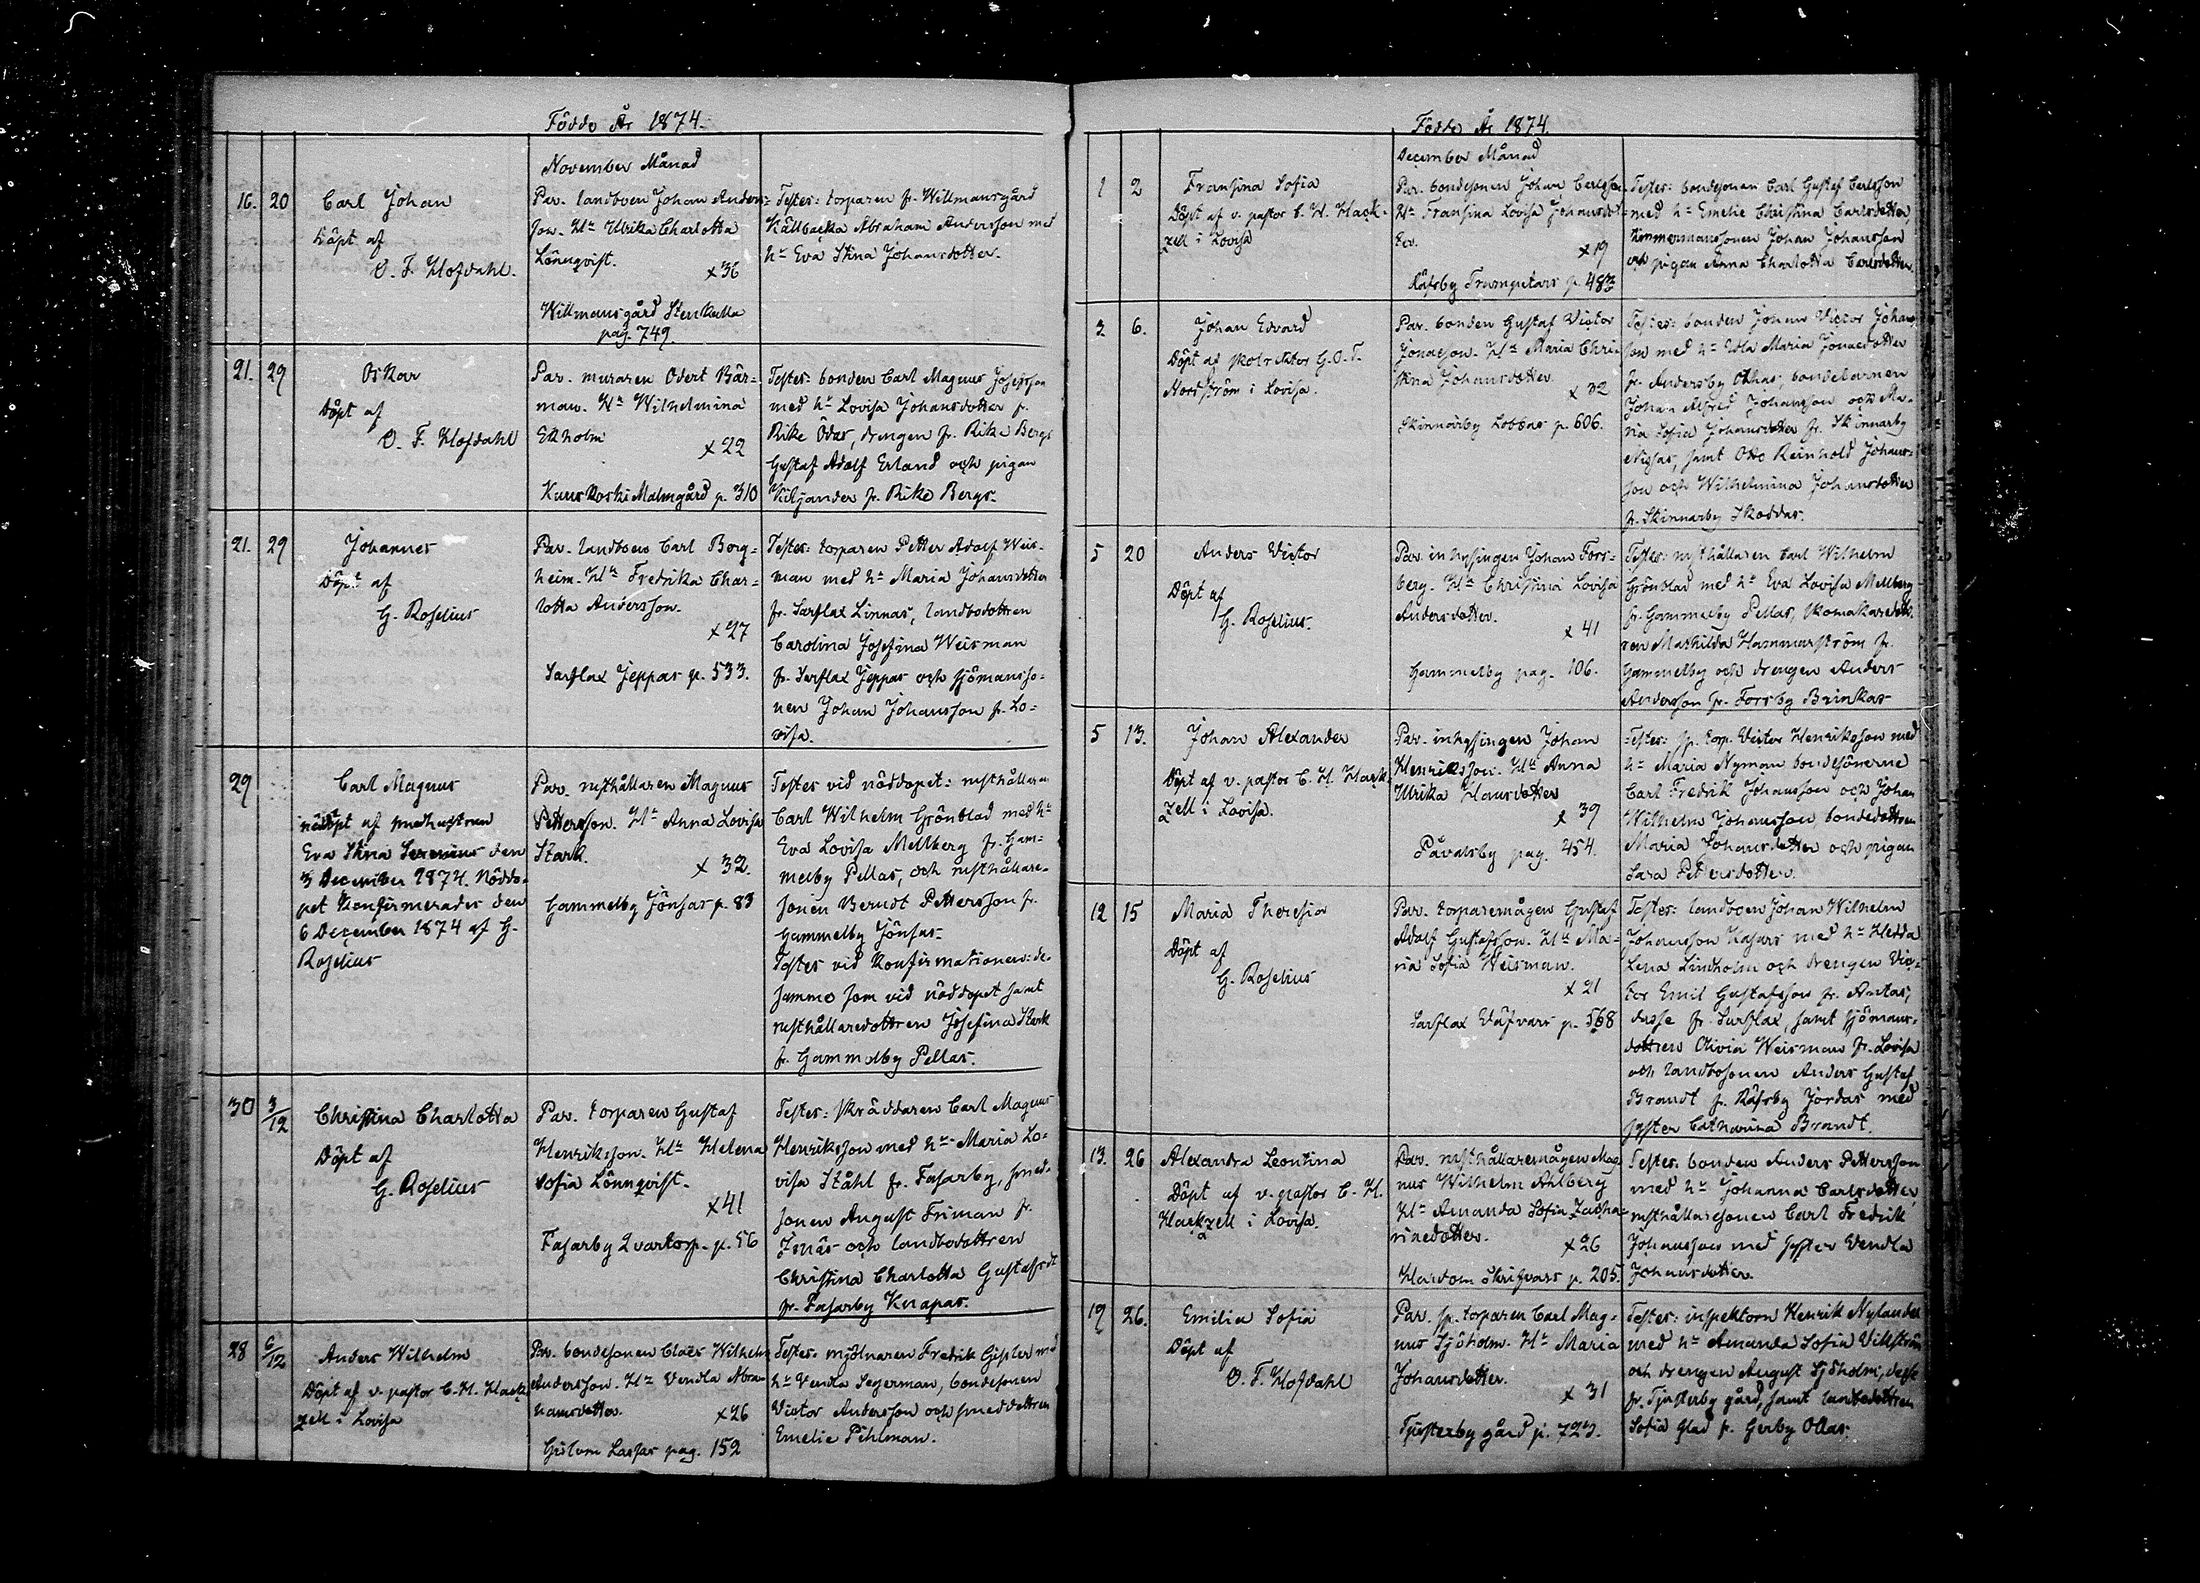 Födde År 1874.
November Månad
16. 20 Carl Johan
Döpt af
O. F. Hofdahl.
Par. landboen Johan Anders=
son. Hu Ulrika Charlotta
Lönnqvist.
x 36
Willmansgård Stenkulla
pag. 749.
Testes: torparen fr. Willmansgård
Källbacka Abraham Andersson med
hu Eva Stina Johansdotter.
21. 29 Oskar
Döpt af
O. F. Hofdahl
Par. muraren Odert Bär=
man. Hu Wilhelmina
Ekholm
x 22
Kuuskoski Malmgård p. 310
Testes: bonden Carl Magnus Josefsson
med hu Lovisa Johansdotter fr.
Rike Odas, drengen fr. Rike Bergs
Gustaf Adolf Erland och pigan
Kiljander fr. Rike Bergs.
21. 29 Johannes
Döpt af
G. Roselius
Par. landboen Carl Borg=
heim. Hu Fredrika Char=
lotta Andersson.
x 27
Sarflax Jeppas p. 533.
Testes: torparen Petter Adolf Weis-
man med hu Maria Johansdotter
fr. Sarflax Linnas, landbodottren
Carolina Josefina Weisman
fr. Sarflax Jeppas och sjömansso=
nen Johan Johansson fr. Lo=
visa.
29 Carl Magnus
nöddöpt af
Eva Stina den
3 December 1874. Nöddo-
pet konfirmerades den
6 December 1874 af G.
Roselius
Par. rusthållaren Magnus
Pettersson. Hu Anna Lovisa
Stark.
x 32.
Gammelby Jönsas p. 83
Testes vid nöddopet: rusthållaren
Carl Wilhelm Grönblad med hu
Eva Lovisa Mellberg fr. Gam-
melby Pellas, och rusthållare-
sonen Berndt Pettersson fr.
Gammelby Jönsas.
Testes vid konfirmationen: de-
samme som vid nöddopet samt
rusthållaredottren Josefina Stark
fr. Gammelby Pellas.
30 3/12 Christina Charlotta
Döpt af
G. Roselius
Par. torparen Gustaf
Henriksson. Hu Helena
Sofia Lönnqvist.
x 41
Fasarby Qvartorp. p. 56
Testes: skräddaren Carl Magnus
Henriksson med hu Maria Lo=
visa Ståhl fr. Fasarby, smed-
sonen August Friman fr.
Isnäs och landbodottren
Christina Charlotta Gustafsdt
fr. Fasarby Knapas.
28 6/12 Anders Wilhelm
Döpt af v. pastor C. H. Hack=
zell i Lovisa
Par. bondesonen Claes Wilhelm
Andersson. Hu Vendla Abra-
hamsdotter.
x 26
Gislom Lassas pag. 152
Testes: mjölnaren Fredrik Gisler med
hu Vendla Segerman, bondesonen
Victor Andersson och smeddottren
Emelie Pihlman.
Födde År 1874.
December Månad
1 2 Fransina Sofia
Döpt af v. pastor C. H. Hack-
zell i Lovisa
Par. bondesonen Johan Carlsson
Hu Fransina Lovisa Johansdot
ter.
x 19
Räfsby Trumpetars p. 483
Testes: bondesonen Carl Gustaf Carlsson
med hu Emelie Christina Carlsdotter,
timmermanssonen Johan Johansson
och pigan Anna Charlotta Carlsdotter.
3 6. Johan Edvard
Döpt af skolrektor G. O. T.
Nordström i Lovisa.
Par. bonden Gustaf Victor
Jonasson. Hu Maria Chri-
stina Johansdotter.
x 32
Skinnarby Lobbas p. 606.
Testes: bonden Johan Victor Johans
son med hu Ulla Maria Jonaedotter
fr. Andersby Othas, bondebarnen
Johan Alfred Johansson och Ma-
ria Sofia Johansdotter fr. Skinnarby
Nissas, samt Otto Reinhold Johans=
son och Wilhelmina Johansdotter
fr. Skinnarby Skoddas.
5 20 Anders Victor
Döpt af
G. Roselius.
Par. inhysingen Johan Fors=
berg. Hu Christina Lovisa
Andersdotter.
x 41
Gammelby pag. 106.
Testes: rusthållaren Carl Wilhelm
Grönblad med hu Eva Lovisa Mellberg
fr. Gammelby Pellas, skomakaredott-
ren Mathilda Hammarström fr.
Gammelby och drengen Anders
Andersson fr. Forsby Brinkas
5 13. Johan Alexander
Döpt af v. pastor C. H. Hack-
zell i Lovisa.
Par. inhysingen Johan
Henriksson. Hu Anna
Ulrika Hansdotter
x 39
Påvalsby pag. 454.
Testes: sp. torp. Victor Henriksson med
hu Maria Nyman bondesönerne
Carl Fredrik Johansson och Johan
Wilhelm Johansson, bondedottren
Maria Johansdotter och pigan
Sara Pettersdotter.
12 15 Maria Theresia
Döpt af
G. Roselius
Par. torparemågen Gustaf
Adolf Gustafsson. Hu Ma-
ria Sofia Weisman.
x 21
Sarflax Väfvars p. 568
Testes: landboen Johan Wilhelm
Johansson Kasars med hu Hedda
Lena Lindholm och drengen Vic-
tor Emil Gustafsson fr. Antas,
desse fr. Sarflax, samt sjömans-
dottren Olivia Weisman fr. Lovisa
och landbosonen Anders Gustaf
Brandt fr. Räfsby Jordas med
syster Catharina Brandt.
13. 26 Alexandra Leontina
Döpt af v. pastor C. H.
Hackzell i Lovisa.
Par. rusthållaremågen Mag
nus Wilhelm Ahlberg
Hu Amanda Sofia Zacha-
rinedotter.
x 26
Hardom Skrifvars p. 205.
Testes: bonden Anders Pettersson
med hu Johanna Carlsdotter,
rusthållaresonen Carl Fredrik
Johansson med syster Vendla
Johansdotter.
19 26. Emilia Sofia
Döpt af
O. F. Hofdahl
Par. sp. torparen Carl Mag-
nus Sjöholm. Hu Maria
Johansdotter.
x 31
Tjusterby gård p. 723.
Testes: inspektorn Henrik Nylander
med hu Amanda Sofia Villström
och drengen August Sjöholm, desse
fr. Tjusterby gård, samt landbodottren
Sofia Glad fr. Gerby Ollas.